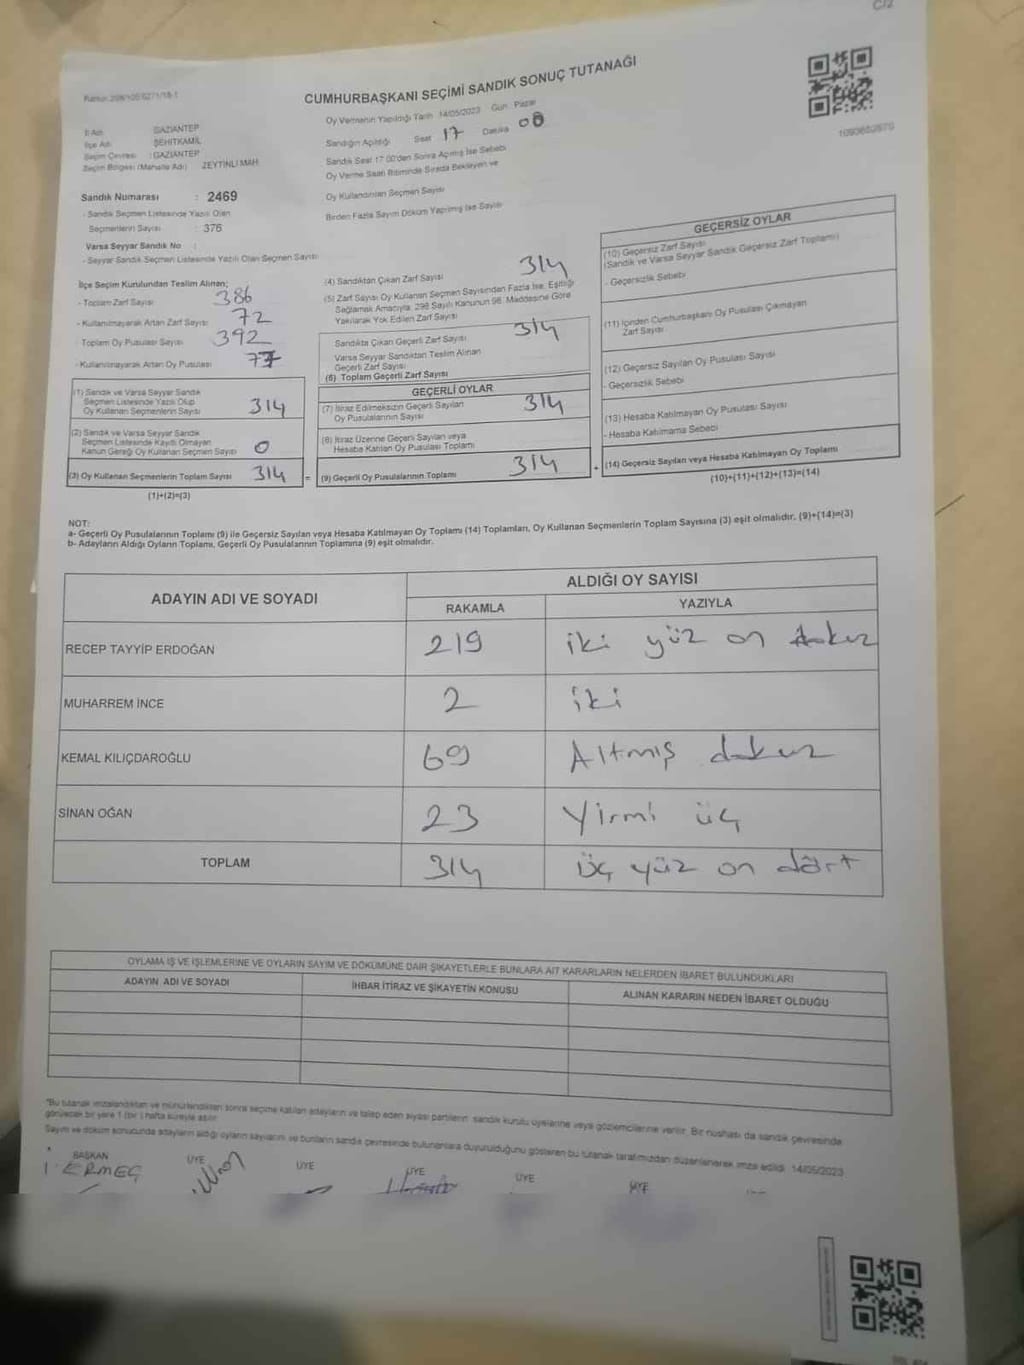 C/2
CUMHURBAŞKANI SEÇİMİ SANDIK SONUÇ TUTANAĞI
İl Adı : GAZİANTEP
İlçe Adı : ŞEHİTKAMİL
Seçim Çevresi : GAZİANTEP
Seçim Bölgesi (Mahalle Adı) : ZEYTİNLİ MAH.
Oy Vermenin Yapıldığı Tarih 14/05/2023 Gün Pazar
Sandığın Açıldığı Saat 17 Dakika 00
Sandık Saat 17:00'den Sonra Açılmış İse Sebebi
Oy Verme Saati Bitiminde Sırada Bekleyen ve
Oy Kullandırılan Seçmen Sayısı
Birden Fazla Sayım Döküm Yapılmış İse Sayısı
1093652870
Sandık Numarası : 2469
- Sandık Seçmen Listesinde Yazılı Olan
Seçmenlerin Sayısı : 376
Varsa Seyyar Sandık No :
- Seyyar Sandık Seçmen Listesinde Yazılı Olan Seçmen Sayısı
İlçe Seçim Kurulundan Teslim Alınan;
- Toplam Zarf Sayısı 386
- Kullanılmayarak Artan Zarf Sayısı 72
- Toplam Oy Pusulası Sayısı 392
- Kullanılmayarak Artan Oy Pusulası 77
(1) Sandık ve Varsa Seyyar Sandık
Seçmen Listesinde Yazılı Olup
Oy Kullanan Seçmenlerin Sayısı 314
(2) Sandık ve Varsa Seyyar Sandık
Seçmen Listesinde Kayıtlı Olmayan
Kanun Gereği Oy Kullanan Seçmen Sayısı 0
(3) Oy Kullanan Seçmenlerin Toplam Sayısı 314
(1)+(2)=(3)
(4) Sandıktan Çıkan Zarf Sayısı 314
(5) Zarf Sayısı Oy Kullanan Seçmen Sayısından Fazla İse, Eşitliği
Sağlamak Amacıyla, 298 Sayılı Kanunun 98. Maddesine Göre
Yakılarak Yok Edilen Zarf Sayısı
Sandıkta Çıkan Geçerli Zarf Sayısı 314
Varsa Seyyar Sandıktan Teslim Alınan
Geçerli Zarf Sayısı
(6) Toplam Geçerli Zarf Sayısı
GEÇERLİ OYLAR
(7) İtiraz Edilmeksizin Geçerli Sayılan
Oy Pusulalarının Sayısı 314
(8) İtiraz Üzerine Geçerli Sayılan veya
Hesaba Katılan Oy Pusulası Toplamı
= (9) Geçerli Oy Pusulalarının Toplamı 314 +
GEÇERSİZ OYLAR
(10) Geçersiz Zarf Sayısı
(Sandık ve Varsa Seyyar Sandık Geçersiz Zarf Toplamı)
- Geçersizlik Sebebi
(11) İçinden Cumhurbaşkanı Oy Pusulası Çıkmayan
Zarf Sayısı
(12) Geçersiz Sayılan Oy Pusulası Sayısı
- Geçersizlik Sebebi
(13) Hesaba Katılmayan Oy Pusulası Sayısı
- Hesaba Katılmama Sebebi
(14) Geçersiz Sayılan veya Hesaba Katılmayan Oy Toplamı
(10)+(11)+(12)+(13)=(14)
NOT:
a- Geçerli Oy Pusulalarının Toplamı (9) ile Geçersiz Sayılan veya Hesaba Katılmayan Oy Toplamı (14) Toplamları, Oy Kullanan Seçmenlerin Toplam Sayısına (3) eşit olmalıdır. (9)+(14)=(3)
b- Adayların Aldığı Oyların Toplamı, Geçerli Oy Pusulalarının Toplamına (9) eşit olmalıdır.
ADAYIN ADI VE SOYADI
ALDIĞI OY SAYISI
RAKAMLA YAZIYLA
RECEP TAYYİP ERDOĞAN 219 iki yüz on dokuz
MUHARREM İNCE 2 iki
KEMAL KILIÇDAROĞLU 69 Altmış dokuz
SİNAN OĞAN 23 Yirmi üç
TOPLAM 314 Üç yüz on dört
OYLAMA İŞ VE İŞLEMLERİNE VE OYLARIN SAYIM VE DÖKÜMÜNE DAİR ŞİKAYETLERLE BUNLARA AİT KARARLARIN NELERDEN İBARET BULUNDUKLARI
ADAYIN ADI VE SOYADI İHBAR İTİRAZ VE ŞİKAYETİN KONUSU ALINAN KARARIN NEDEN İBARET OLDUĞU
*Bu tutanak imzalandıktan ve mühürlendikten sonra seçime katılan adayların ve talep eden siyasi partilerin sandık kurulu üyelerine veya gözlemcilerine verilir. Bir nüshası da sandık çevresinde
görülecek bir yere 1 (bir) hafta süreyle asılır.
Sayım ve döküm sonucunda adayların aldığı oyların sayılarını ve bunların sandık çevresinde bulunanlara duyurulduğunu gösteren bu tutanak tarafımızdan düzenlenerek imza edildi. 14/05/2023
BAŞKAN ÜYE ÜYE ÜYE ÜYE ÜYE
ERMEÇ